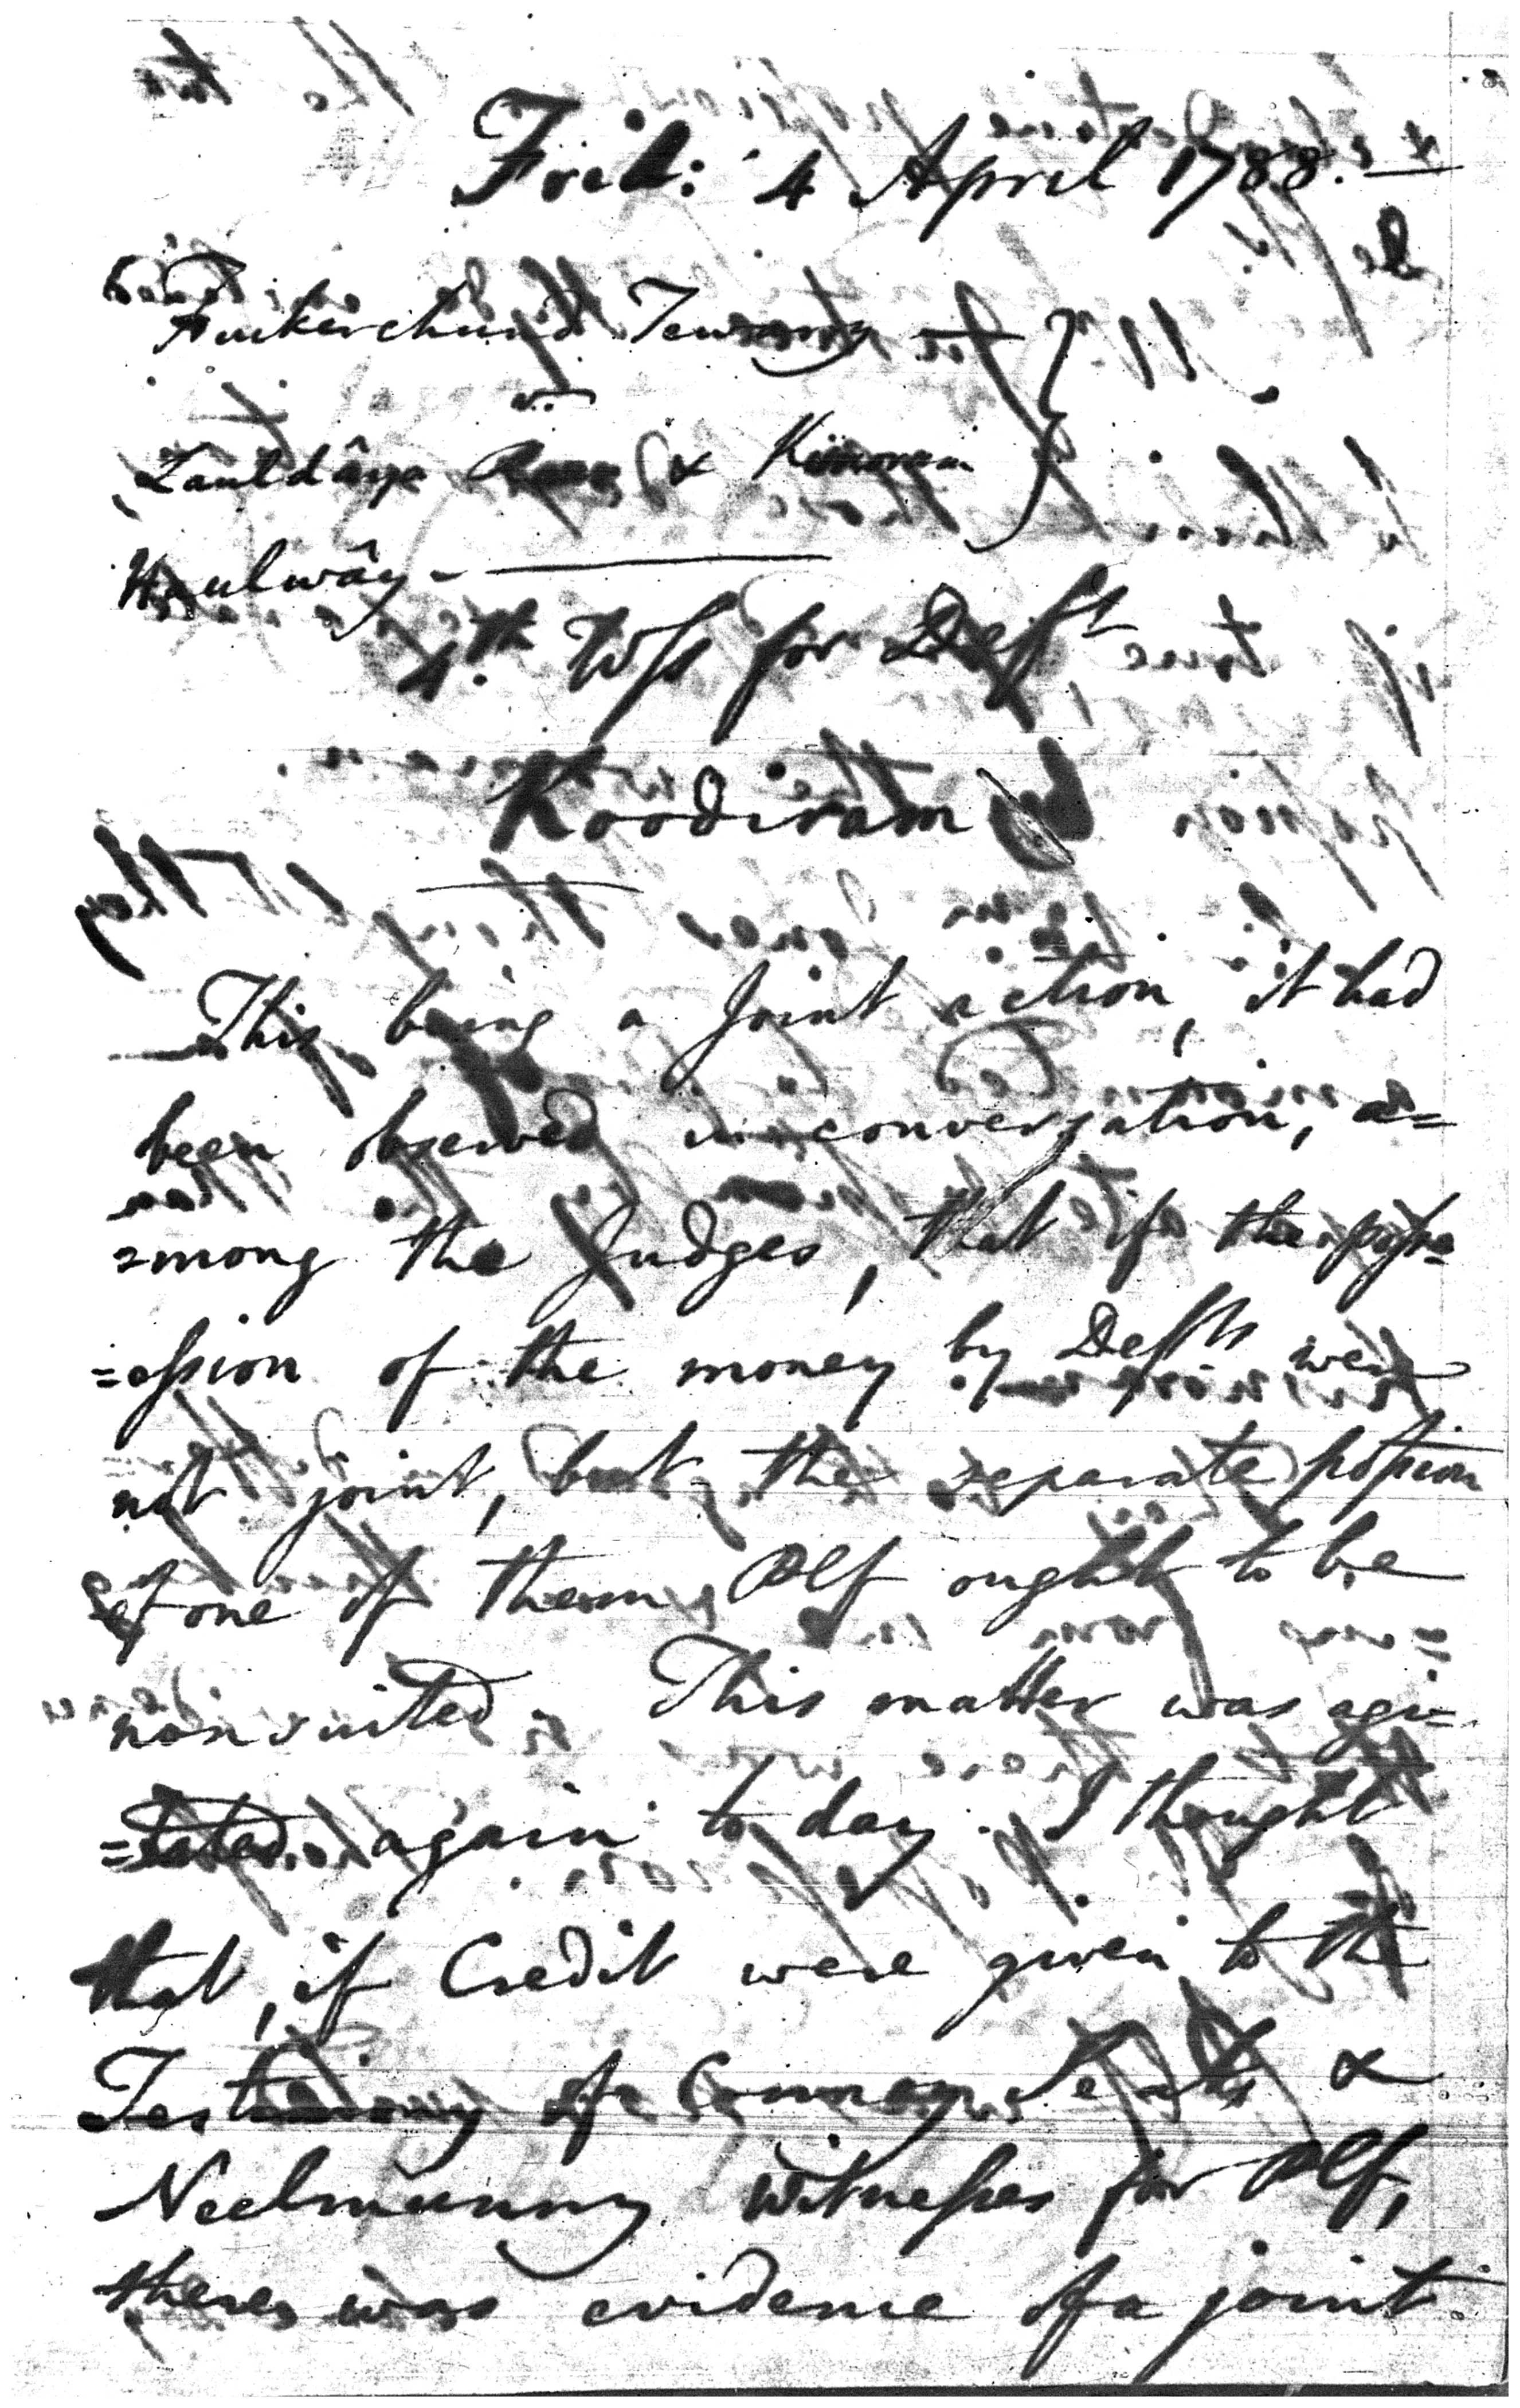 Frid: 4 April 1788.
Fuckerchund Tewarry
v.
Lauldâya & 
Haulwây
4th Wss for Deft
Koodiram
This being a Joint action, it had
been observed in conversation, a=
=mong the Judges, that if the poss=
=ession of the money by Defts were
not joint, but the separate possion
of one of them Plf ought to be
nonsuited. This matter was agi=
=tated again to day. I thought
that, if Credit were given to the
Testimony of &
Neelmunny witnesses for Plf,
there was evidence of a joint